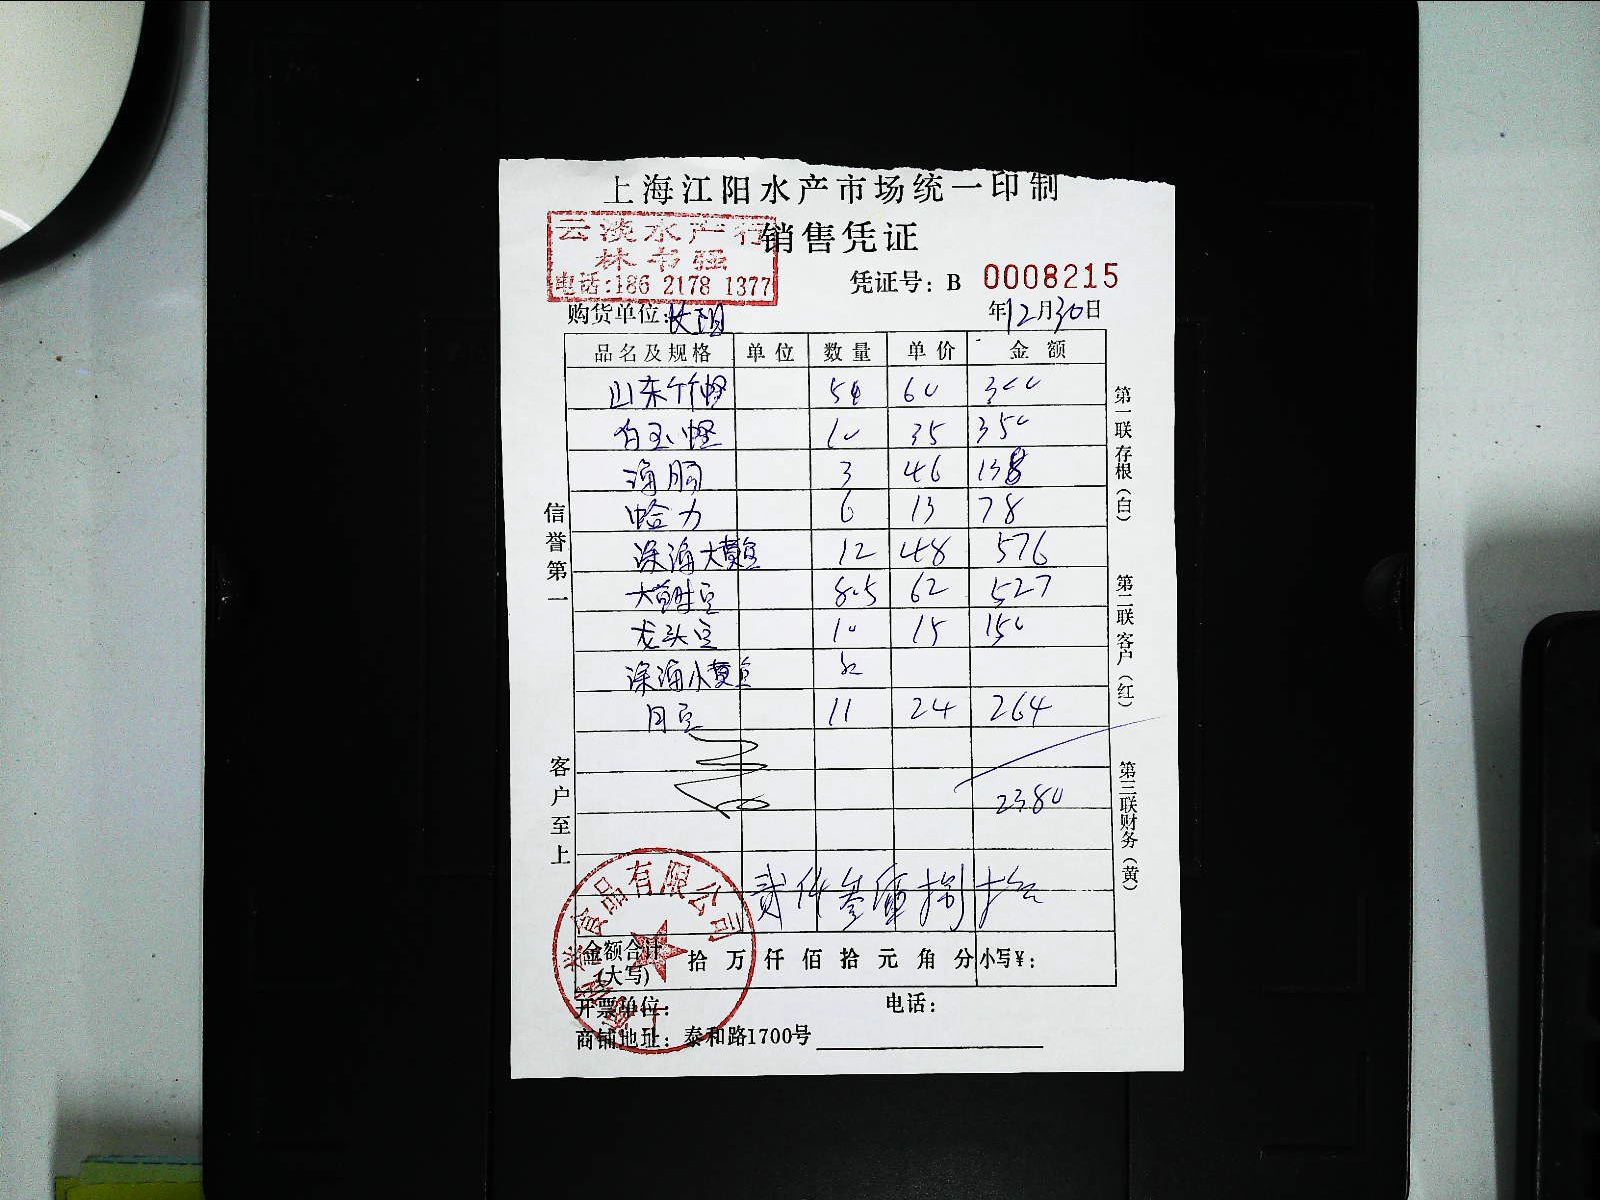 上海江阳水产市场统一印制
云淡水产行
林书强
电话:186 2178 1377
销售凭证
凭证号: B 0008215
购货单位:
年12月30日
品名及规格 单位 数量 单价 金额
山东竹蛏 60 300
白玉蛏 10 35 350
海肠 3 46 138
蛤力 6 13 78
深海大黄鱼 12 48 576
8.5 62 527
龙头 10 15 150
深海小黄鱼
11 24 264
2380
贰仟叁佰捌拾
金额合计(大写) 拾 万 仟 佰 拾 元 角 分 小写¥:
开票单位: 电话:
商铺地址: 泰和路1700号
信誉第一
客户至上
第一联存根(白)
第二联客户(红)
第三联财务(黄)
食品有限公司